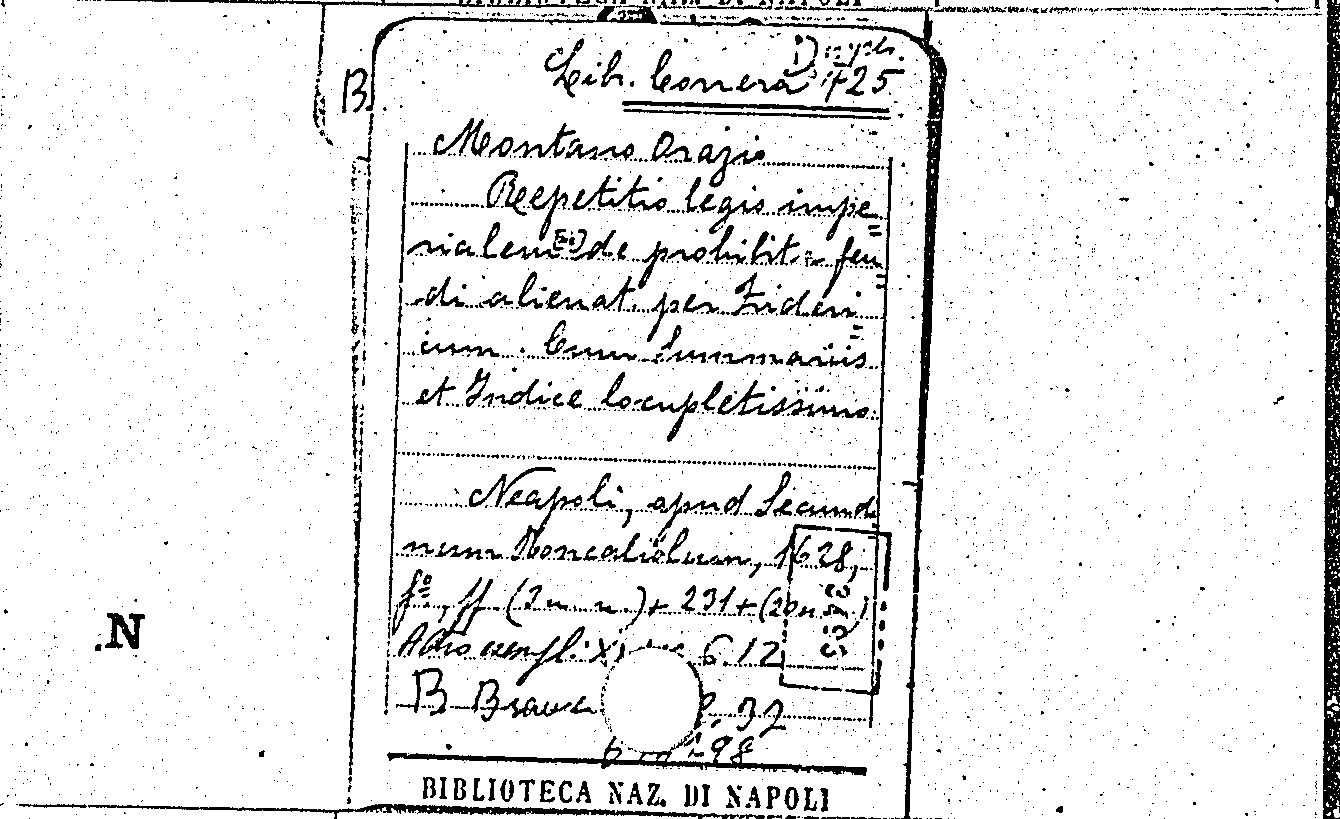 BIBLIOTECA NAZ. DI NAPOLI
B.
Lib. Correra 425
Montano Orazio
Repetitio legis impe=
rialem de prohibit. feu=
di alienat. per Frideri=
cum. Cum Summariis
et Indice locupletissimo.
Neapoli, apud Secundi
num Roncaliolum, 1628,
fº, ff (2 n. n.) + 231 + (20 n.
Altro exempl. 6. 12
B. Branc 32
98
.N
BIBLIOTECA NAZ. DI NAPOLI